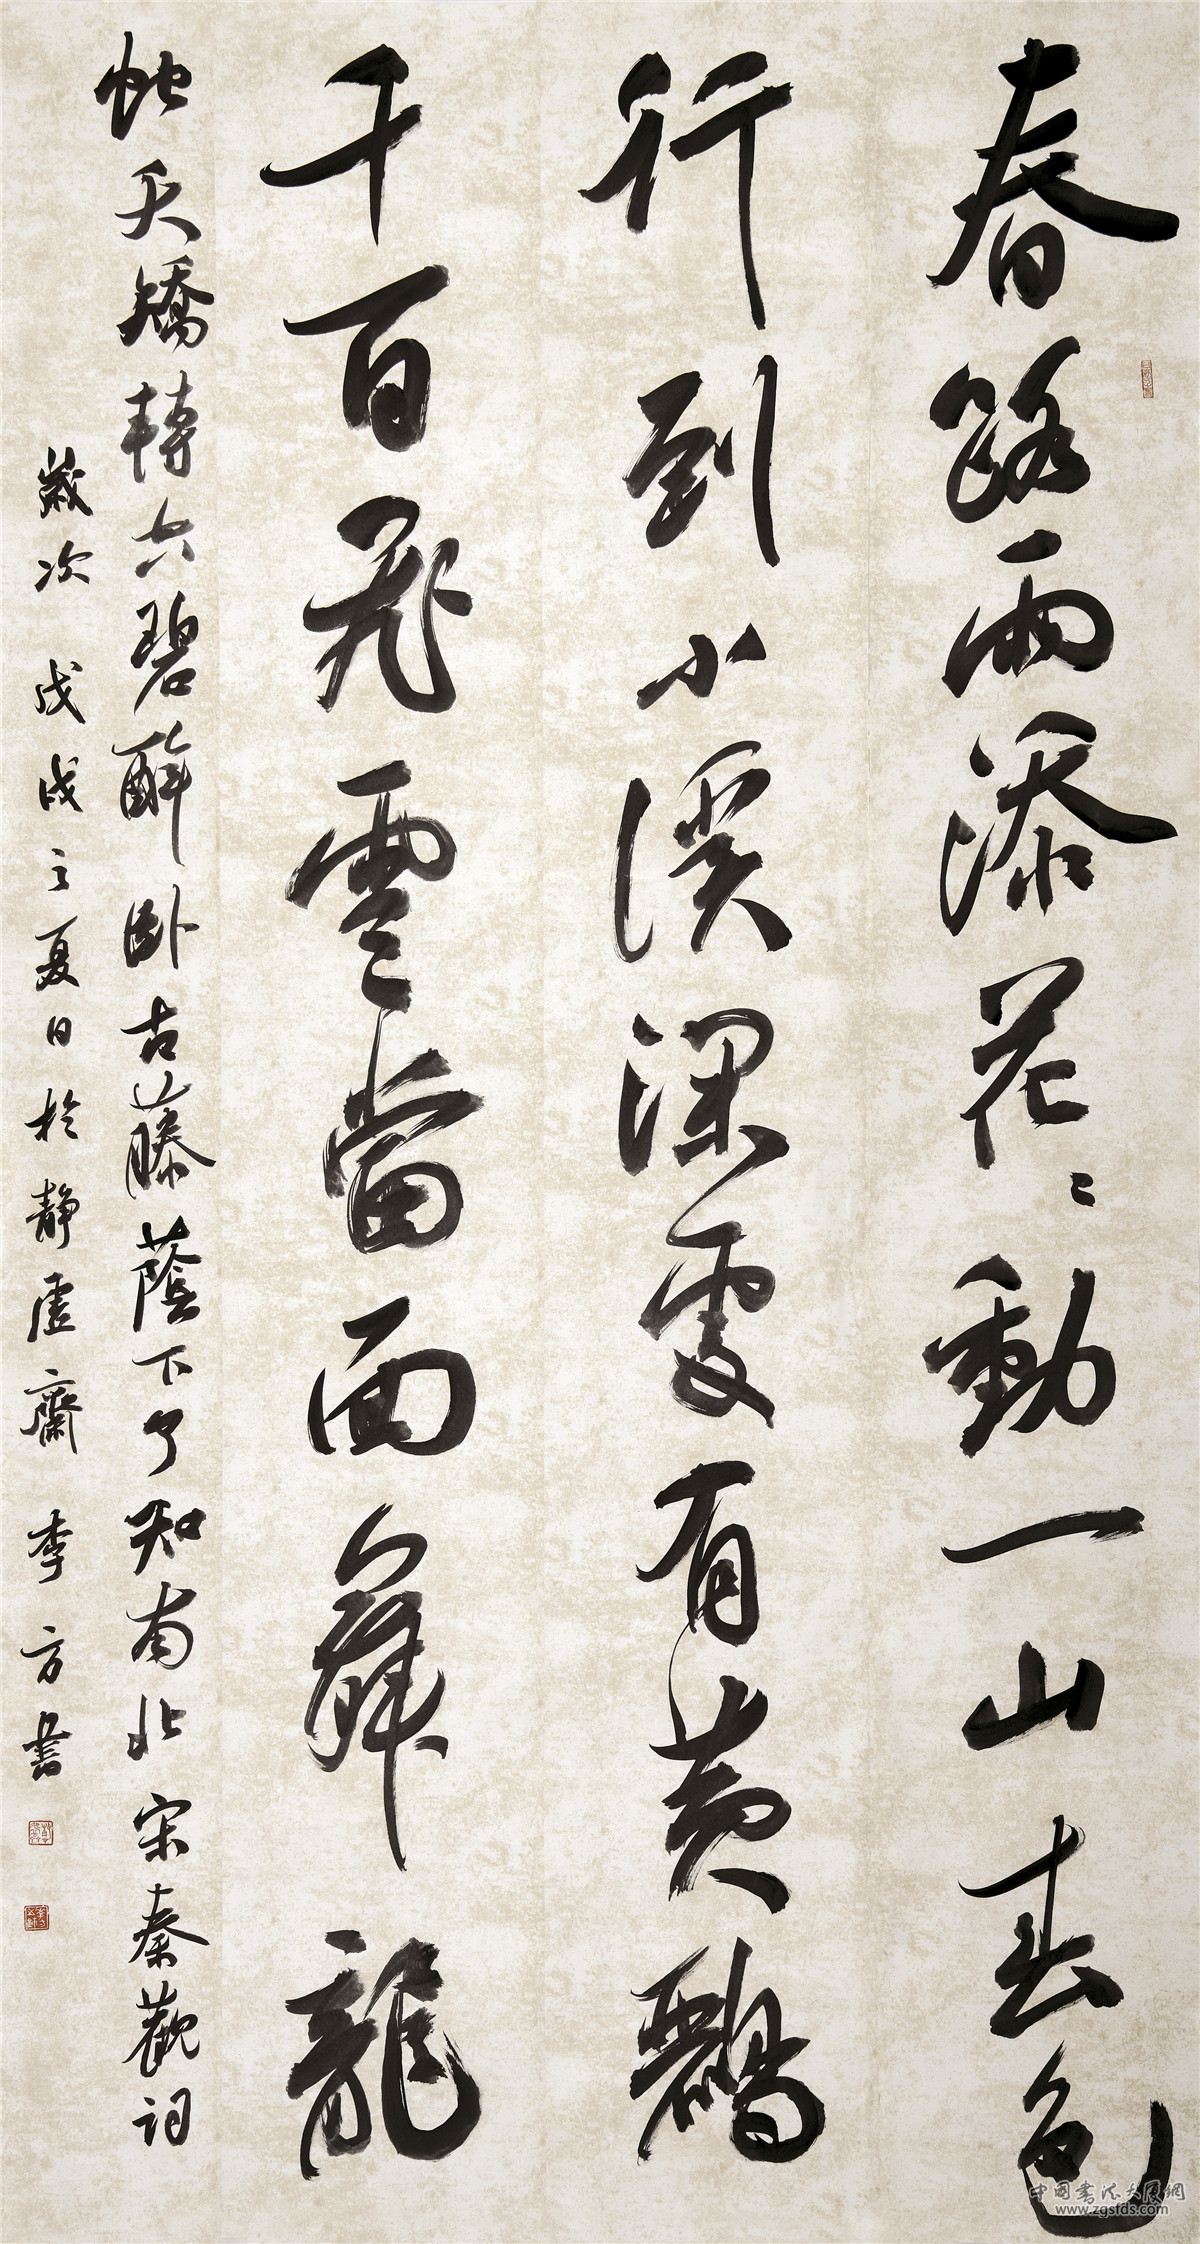 春路雨添花〻動一山春色
行到小溪深處有黃鸝
千百飛雲當面舞龍
蛇夭矯轉空碧醉臥古藤蔭下了知南北宋秦觀詞
歲次戊戌之夏日於靜虛齋李方書
中國書法大展網
www.zgsfds.com